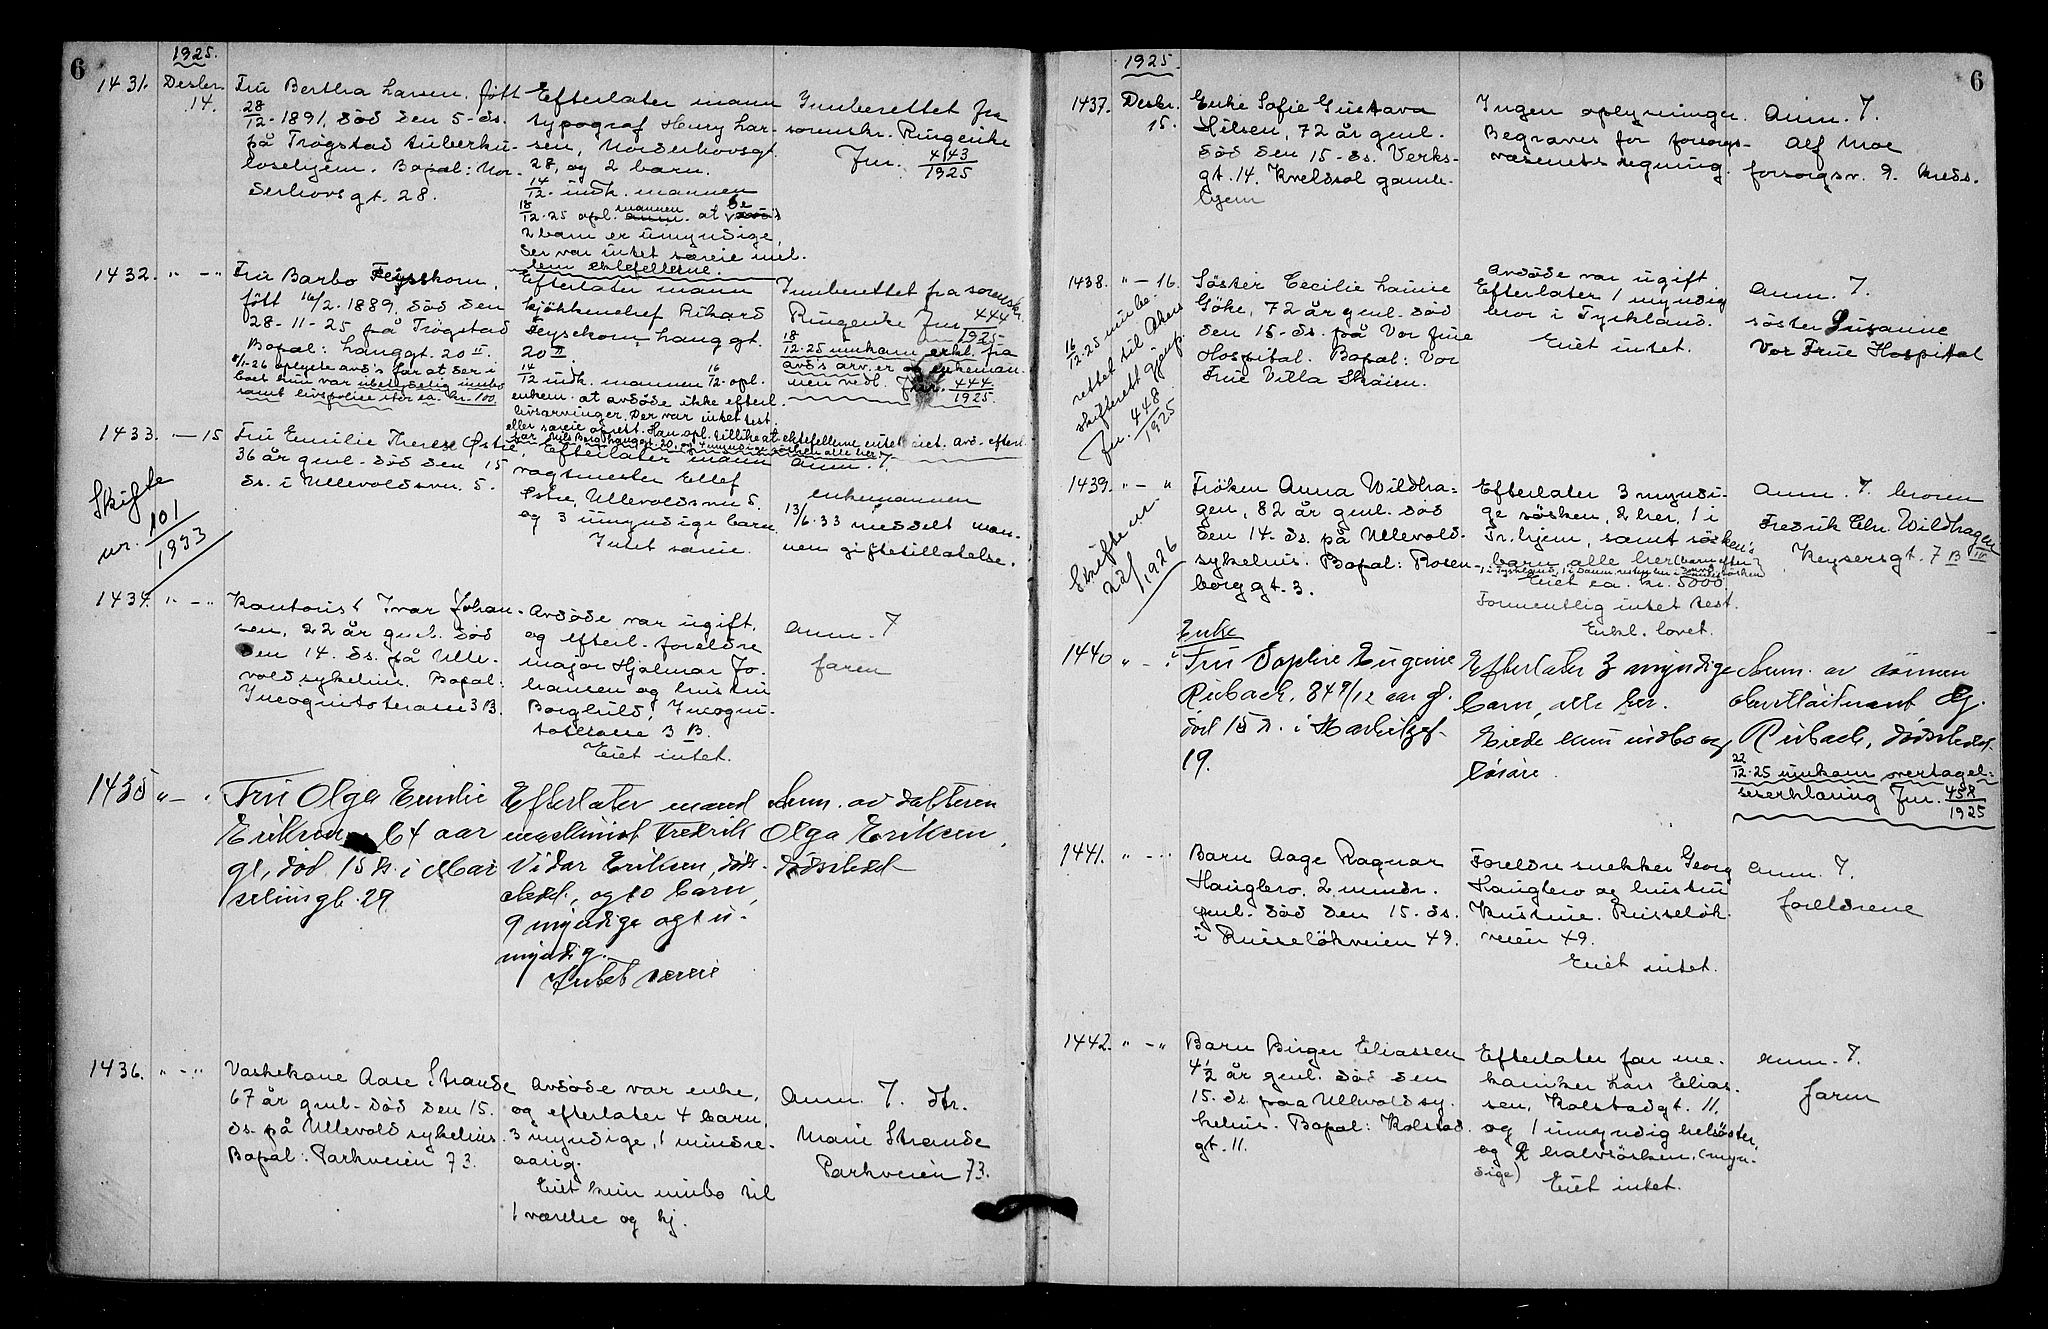 6
1925.
1431. Desbr. 14.
Fru Bertha Larsen, født
28/12-1891, død den 5-ds.
på Trøgstad tuberku-
losehjem. Bopæl: Nor-
derhovsgt. 28.
Efterlater mann
typograf Henry Lar-
sen, Norderhovsgt.
28, og 2 barn.
14/12. indk. mannen
18/12-25 opl. mannen at de
2 barn er umyndige,
der var intet særeie mel-
lem ektefellerne.
Innberettet fra
sorenskr. Ringerike
Jnr. 443/1925
1432. " - "
Fru Barbo Feysekorn,
født 16/2-1889, død den
28-11-25 på Trøgstad
Bopæl: Langgt. 20 II.
8/1-26 oplyste avd's far at der i
boet kun var ubetydelig innbo
samt livspolise stor ca. kr. 100
Efterlater mann
kjøkkenchef Rikard
Feysekorn, Langgt.
20 II
14/12 indk. mannen 16/12. opl.
enkem. at avdøde ikke efterl.
livsarvinger. Der var intet test.
eller særeie oprett. Han opl. tillike at ektefellerne intet eiet. avd. efterl.
far Nils Berg Langgt. 20, og 4 umyndige søsken alle her
Innberettet fra sorenskr.
Ringerike Jnr. 444/1925
18/12-25 innkom erkl. fra
avd's arv. er og enkeman-
nen vedl. Jnr. 444/1925.
1433. " - 15
Skifte nr. 101/1933
Fru Emilie Therese Østie,
36 år gml. død den 15
ds. i Ullevoldsvn. 5.
Efterlater mann
vagtmester Ellef
Østie, Ullevoldsvn 5.
og 3 umyndige barn
Intet særeie.
Anm. 7.
enkemannen
13/6-33 meddelt man-
nen giftetillatelse.
1434. " - "
Kontorist Ivar Johan-
sen, 22 år gml. død
den 14. ds. på Ulle-
vold sykehus. Bopæl:
Incognitoterasse 3 B.
Avdøde var ugift,
og efterl. foreldre
major Hjalmar Jo-
hansen og hustru
Borghild, Incogni-
toterasse 3 B.
Eiet intet.
Anm. 7
faren
1435 " - "
Fru Olga Emilie
Eriksen 64 aar
gl, død 15 ds. i Mar
seliusgt. 29.
Efterlater mand
maskinist Fredrik
Vidar Eriksen, døds-
stedet, og 10 barn,
9 myndige og 1 u-
myndig.
Intet særeie
Anm. av datteren
Olga Eriksen,
dødsstedet
1436. " - "
Vaskekone Aase Strande
67 år gml. død den 15.
ds. på Ullevold sykehus.
Bopæl: Parkveien 73.
Avdøde var enke,
og efterlater 4 barn,
3 myndige, 1 mindre-
aarig.
Eiet kun innbo til
1 værelse og kj.
Anm. 7. dtr.
Marie Strande
Parkveien 73.
6
1925.
1437. Desbr. 15.
Enke Sofie Gustava
Nilsen, 72 år gml.
død den 15-ds. Verks-
gt. 14. Kveldsol gamle-
hjem
Ingen oplysninger.
Begraves for forsorgs-
væsenets regning.
Anm. 7.
Alf Moe
forsorgsv. 9. Kreds.
1438. " - 16.
16/12-25 innbe-
rettet til Akers
skifterett gjenp.
Jnr. 448/1925
Søster Cecilie Louise
Göke, 72 år gml. død
den 15-ds. på Vor Frue
Hospital. Bopæl: Vor
Frue Villa Skøien.
Avdøde var ugift.
Efterlater 1 myndig
bror i Tyskland.
Eiet intet.
Anm. 7.
søster Susanne
Vor Frue Hospital
1439. " - "
Skifte nr. 22/1926
Frøken Anna Wildha-
gen, 82 år gml. død
den 14. ds. på Ullevold
sykehus. Bopæl: Rosen-
borggt. 3.
Efterlater 3 myndi-
ge søsken, 2 her, 1 i
Tr.hjem, samt søsken's
barn, alle her (barn efter
Eiet ca. kr. 5000
Formentlig intet test.
Enkl. lovet.
Anm. 7. broren
Fredrik Chr. Wildhagen
Keysersgt. 7 B IV
1440 " - "
Enke
Fru Sophie Eugenie
Rubach, 84 9/12 aar gl.
død 15 ds. i
19.
Efterlater 3 myndige
barn, alle her.
Eiede kun indbo og
løsøre.
Anm. av sønnen
oberstløitnant Chr.
Rubach, dødsstedet.
22/12-25 innkom overtagel-
seserklæring Jnr. 458/1925
1441. " - "
Barn Aage Ragnar
Haugbro, 2 mndr.
gml. død den 15. ds.
i Ruseløkveien 49.
Foreldre snekker Georg
Haugbro og hustru
Kristine. Ruseløk-
veien 49.
Eiet intet.
Anm. 7.
foreldrene
1442. " - "
Barn Birger Eliassen
4 1/2 år gml. død den
15. ds. paa Ullevold sy-
kehus. Bopæl: Kolstad-
gt. 11.
Efterlater far me-
kaniker Lars Elias-
sen, Kolstadgt. 11.
og 1 umyndig helsøster,
og 2 halvsøsken, (myn-
dige)
Eiet intet.
Anm. 7.
faren